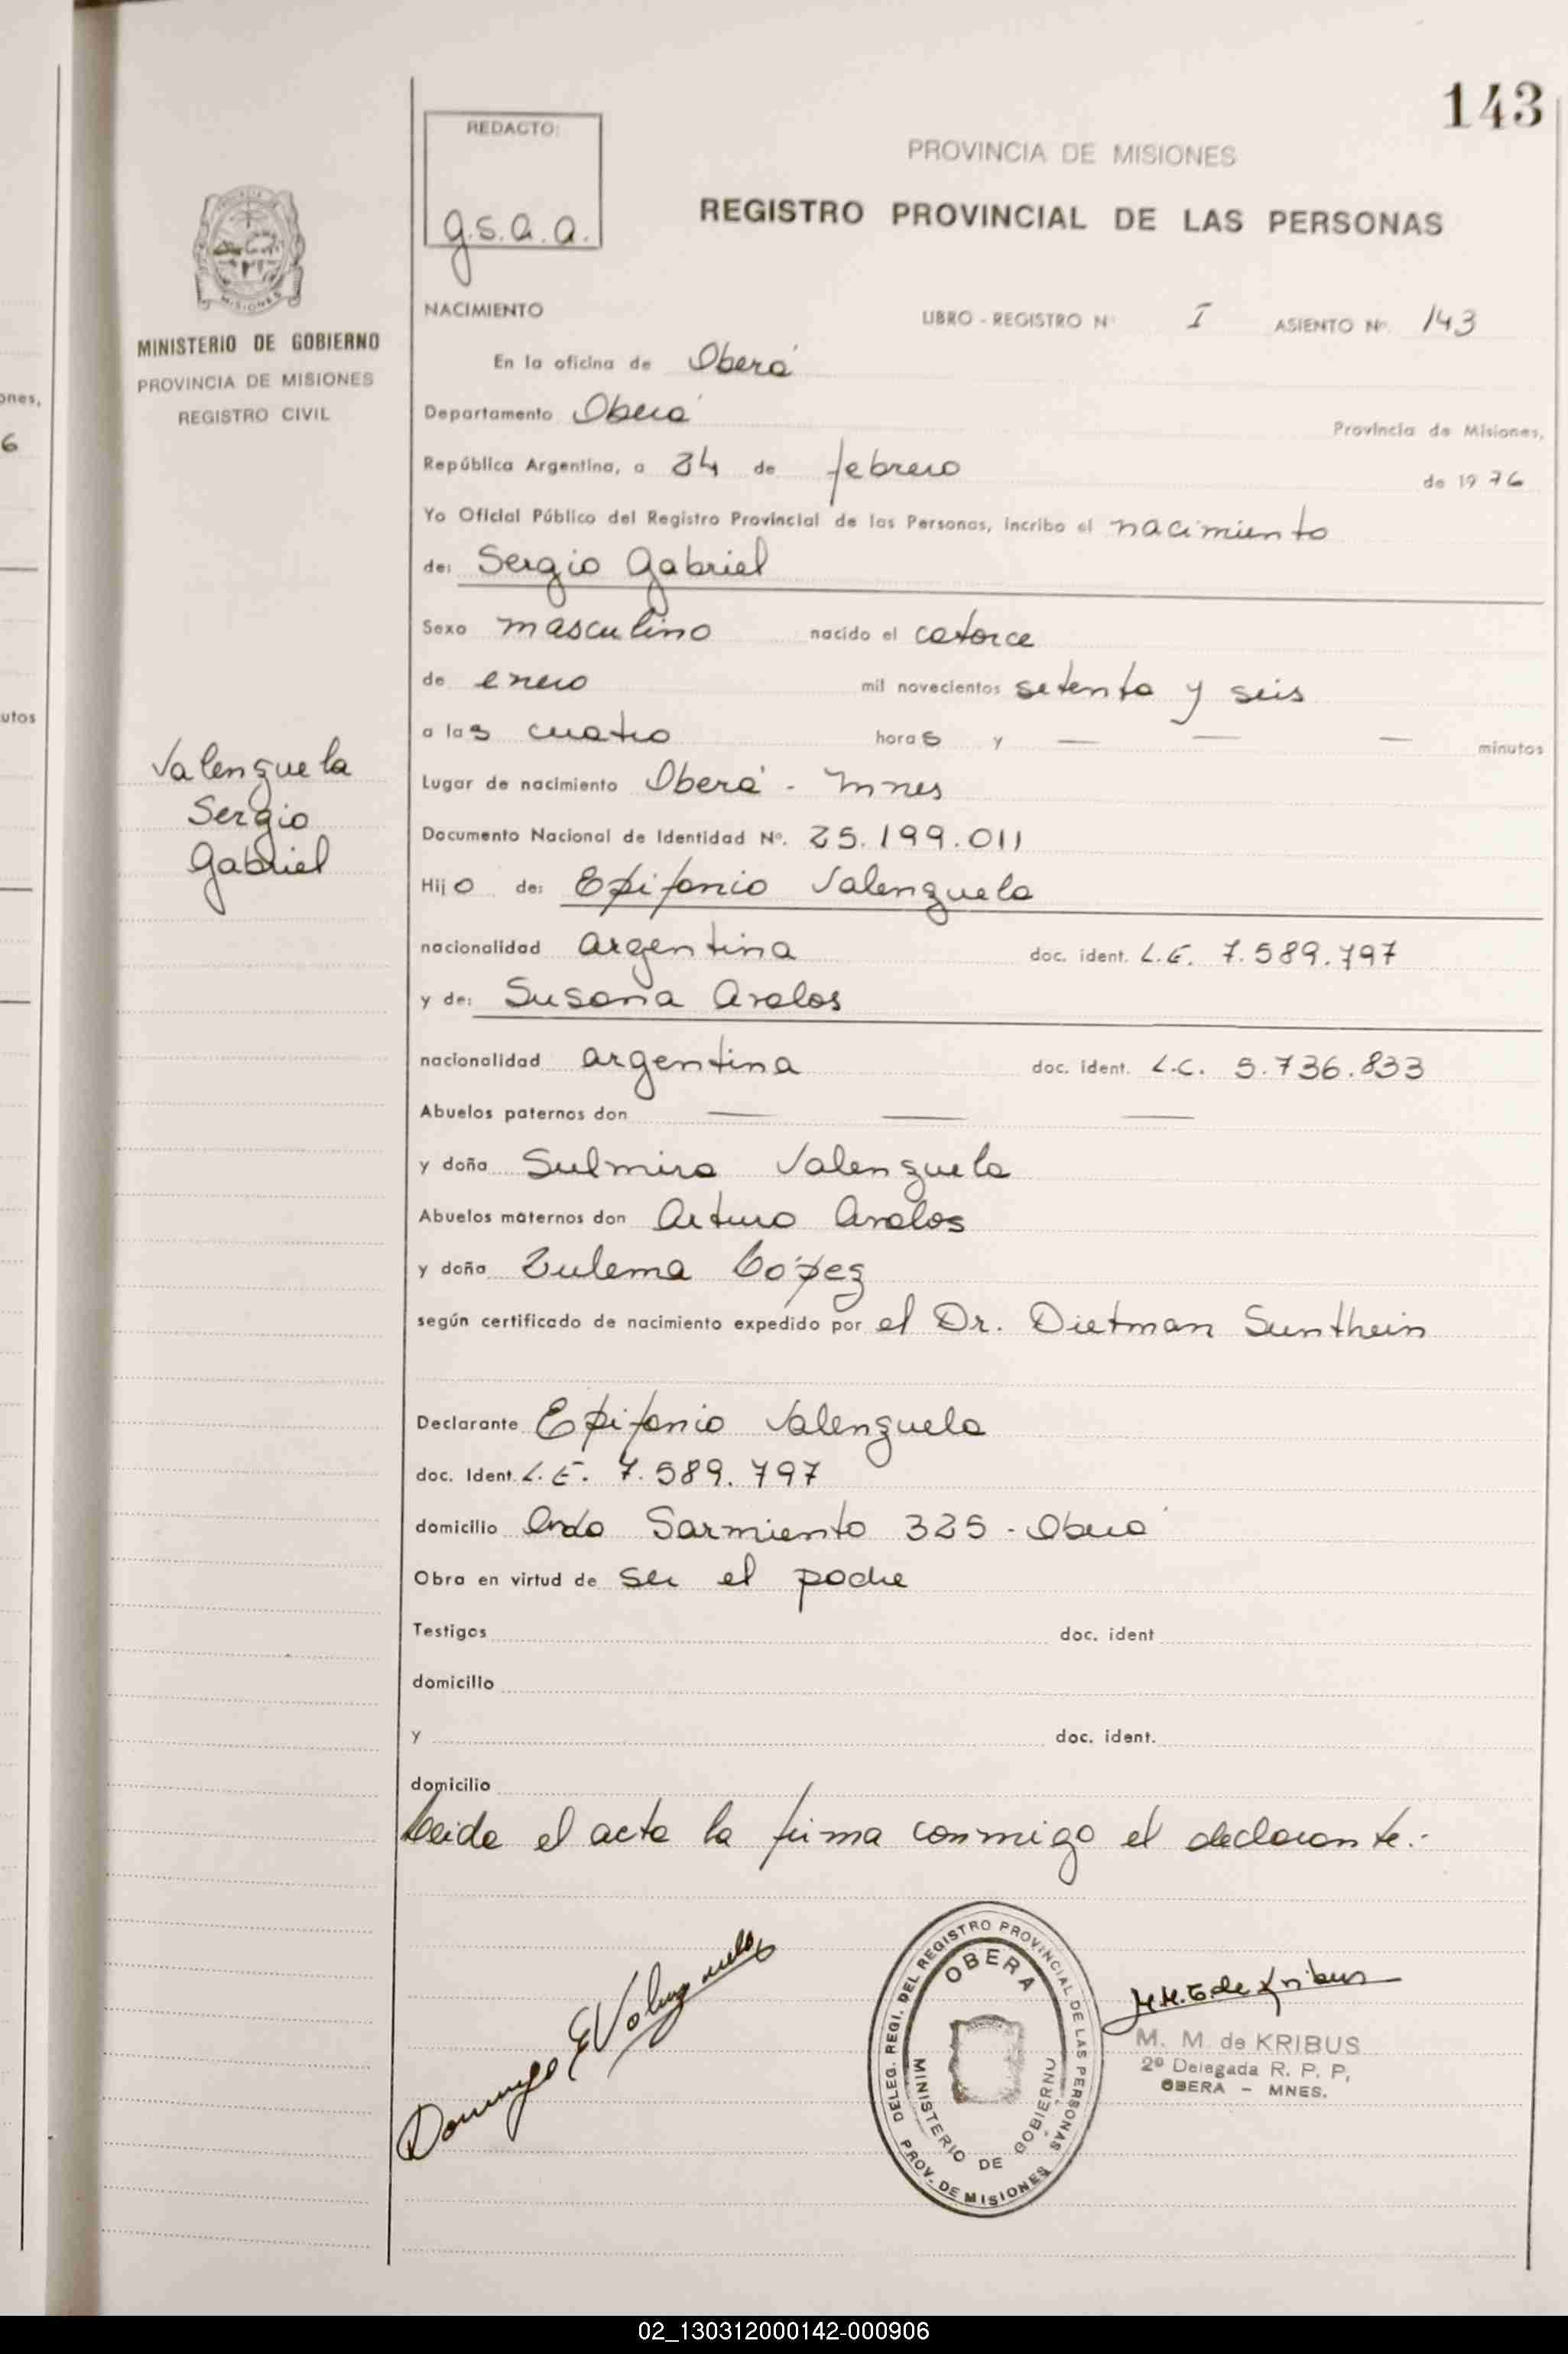 ones,
6
utos
143
REDACTO:
g.s.a.a.
PROVINCIA DE MISIONES
REGISTRO PROVINCIAL DE LAS PERSONAS
MISIONES
MINISTERIO DE GOBIERNO
PROVINCIA DE MISIONES
REGISTRO CIVIL
Valenzuela
Sergio
Gabriel
NACIMIENTO LIBRO - REGISTRO Nº I ASIENTO Nº. 143
En la oficina de Oberá
Departamento Oberá Provincia de Misiones,
República Argentina, a 24 de febrero de 1976
Yo Oficial Público del Registro Provincial de las Personas, incribo el nacimiento
de: Sergio Gabriel
Sexo masculino nacido el catorce
de enero mil novecientos setenta y seis
a las cuatro horas y — — — minutos
Lugar de nacimiento Oberá - Mnes
Documento Nacional de Identidad Nº. 25.199.011
Hijo de: Epifanio Valenzuela
nacionalidad argentina doc. ident. L.E. 7.589.797
y de: Susana Avalos
nacionalidad argentina doc. ident. L.C. 5.736.833
Abuelos paternos don — — —
y doña Sulmira Valenzuela
Abuelos maternos don Arturo Avalos
y doña Zulema López
según certificado de nacimiento expedido por el Dr. Dietman Sunthein
Declarante Epifanio Valenzuela
doc. Ident. L.E. 7.589.797
domicilio Avda Sarmiento 325 - Oberá
Obra en virtud de ser el padre
Testigos doc. ident
domicilio
y doc. ident.
domicilio
Leida el acta la firma conmigo el declarante.-
Domingo E Valenzuela
DELEG. REGI. DEL REGISTRO PROVINCIAL DE LAS PERSONAS
OBERA
MINISTERIO DE GOBIERNO
PROV. DE MISIONES
M.M.G. de Kribus
M. M. de KRIBUS
2º Delegada R. P. P,
OBERA - MNES.
02_130312000142-000906